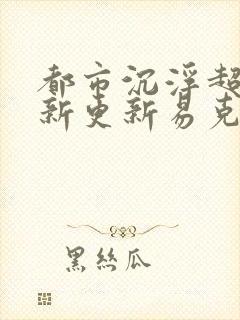 都市沉浮超
新更新易克
黑丝瓜